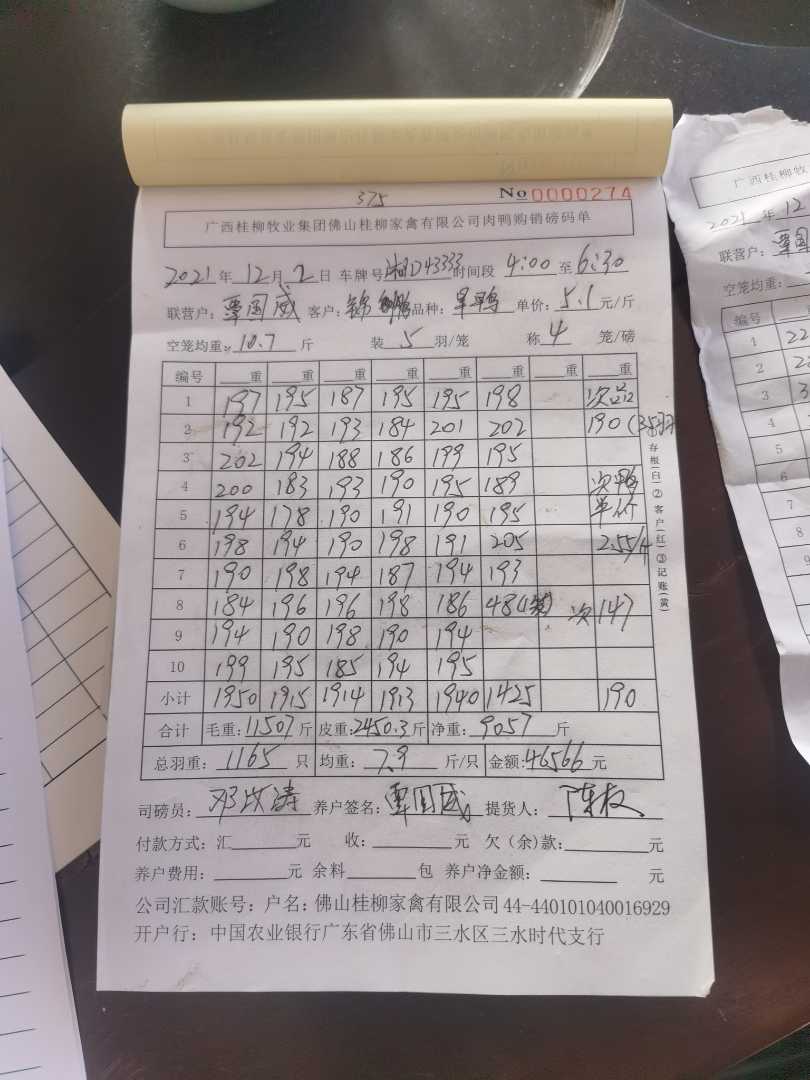 375
No 0000274
广西桂柳牧业集团佛山桂柳家禽有限公司肉鸭购销磅码单
2021年12月2日 车牌号湘D43333时间段 4:00 至 6:30
联营户：覃国威 客户：锦鹏 品种：旱鸭 单价：5.1元/斤
空笼均重：10.7 斤 装 5 羽/笼 称 4 笼/磅
编号 重 重 重 重 重 重 重 重
1 197 195 187 195 195 198 次品
2 192 192 193 184 201 202 190 (35羽)
3 202 194 188 186 199 195
4 200 183 193 190 195 189 次鸭
5 194 178 190 191 190 195 单价
6 198 194 190 198 191 205 2.55/斤
7 190 198 194 187 194 193
8 184 196 196 198 186 48(1笼) 次147
9 194 190 198 190 194
10 199 195 185 194 195
小计 1950 1915 1914 1913 1940 1425 190
合计 毛重：11507 斤 皮重：2450.3斤 净重：9057 斤
总羽重：1165 只 均重：7.9 斤/只 金额：46566 元
司磅员：邓 涛 养户签名：覃国威 提货人：陈权
付款方式：汇 元 收： 元 欠（余）款： 元
养户费用： 元 余料 包 养户净金额： 元
公司汇款账号：户名：佛山桂柳家禽有限公司 44-440101040016929
开户行：中国农业银行广东省佛山市三水区三水时代支行
①存根(白)②客户(红)③记账(黄)
广西桂柳牧
2021年12
联营户：覃国
空笼均重：
编号
1 22
2 22
3 3
4
5
6
7
8
9